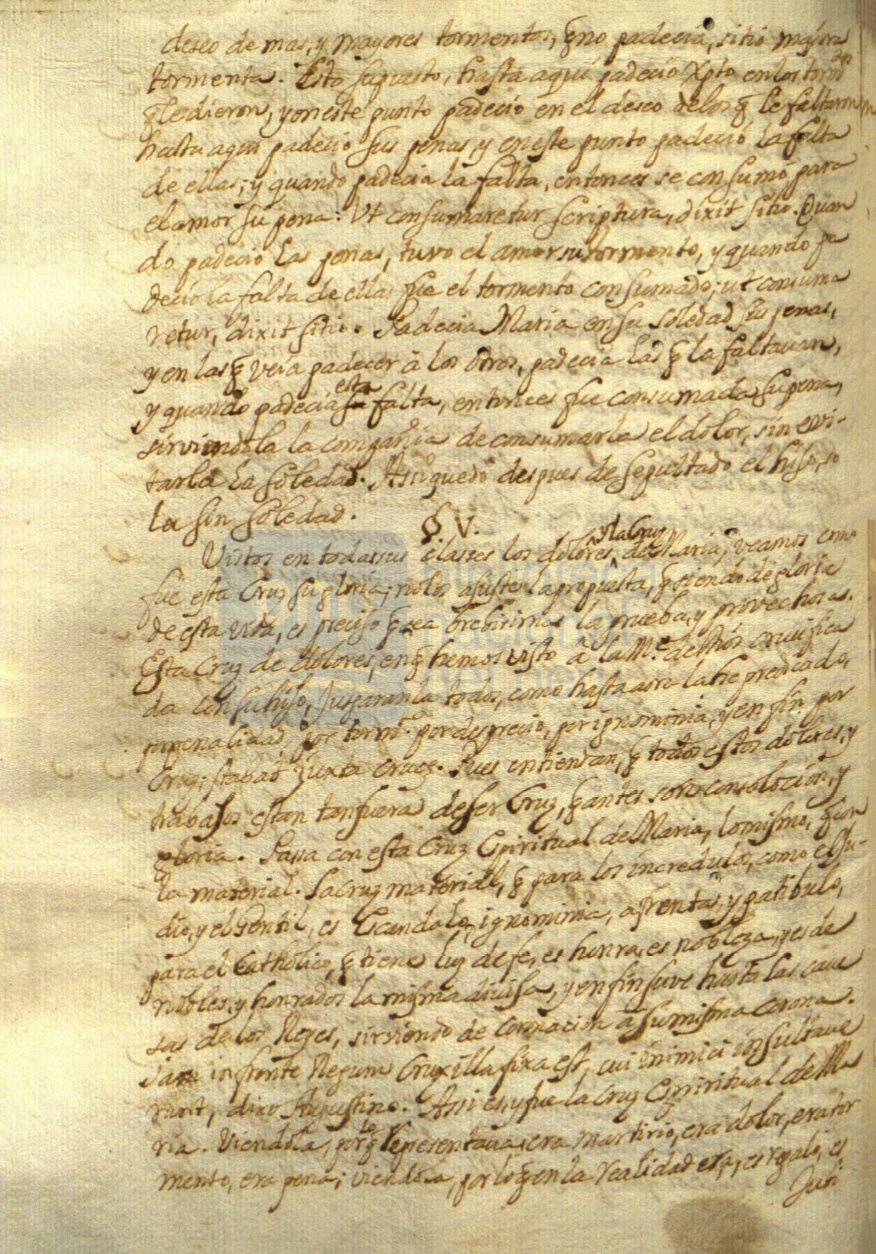 deseo de mas, y mayores tormentos, q̃ no padecia, sitio mayor
tormenta. Esto supuesto, hasta aqui padecio Xpto en los torm.tos
q̃ le dieron, y en este punto padecio en el deseo de los q̃ le faltaron
hasta aqui padecio sus penas, y en este punto padecio la falta
de ellas; y quando padecia la falta, entonces se consumó para
el amor su pena: Ut consumaretur scriptura, dixit sitio. Quan
do padecio las penas, tuvo el amor su tormento, y quando pa
decio la falta de ellas fue el tormento consumado; ut consuma
retur, dixit sitio. Padecia Maria en su soledad sus penas,
y en las q̃ veia padecer à los otros, padecia las q̃ la faltavan,
y quando padecia esta falta, entonces fue consumada su pena,
sirviendola la compañia de consumarla el dolor, sin evi-
tarla la soledad. Assi quedò despues de sepultado el hijo, so
la sin soledad.
§ V.
Vistos en todas sus clases los dolores, y la Cruz de Maria, veamos como
fue esta Cruz su gloria; no los asuste la propuesta, q̃ siendo de gloria
de esta vida, es preciso q̃ sea brebissima la prueba, y provechosa.
Esta Cruz de dolores, en q̃ hemos visto à la M.e de Dios crucifica
da con su hijo, juzgaranla todos, como hasta aora la he predicado,
por penalidad, por torm.to por desprecio, por ignominia, y en fin por
Cruz; stabat juxta crucẽ. Pues entiendan, q̃ todos estos dolores, y
trabajos estan tan fuera de ser Cruz, q̃ antes son consolacion, y
gloria. Passa con esta Cruz Espiritual de Maria, lo mismo, q̃ con
la material. La Cruz material, q̃ para los incredulos, como el Ju-
dio, y el Gentil, es Escandalo, ignominia, afrenta, y patibulo,
para el Catholico, q̃ tiene luz de fe, es honra, es nobleza, y es de
nobles, y honrados la misma divisa, y en fin suve hasta las cave
sas de los Reyes, sirviendo de coronacion à su misma corona.
Iam in fronte Regum Crux illa fixa est, cui inimici insultave
runt, dixo Augustino. Assi es, y fue la Cruz Espiritual de Ma
ria. Viendola, por lo q̃ representava, era martirio, era dolor, era tor
mento, era pena; viendola, por lo q̃ en la realidad era, es regalo, es